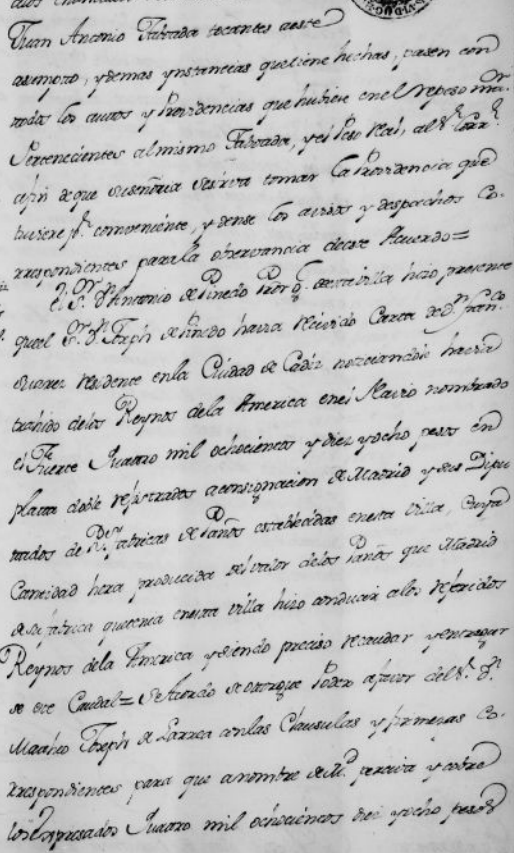 Juan Antonio Taboada tocantes aeste
asumpto, y demas ynstancias quetiene hechas, pasen con
todos los autos y Providencias que hubiere en el repeso mor.
Pertenecientes almismo Taboada, y el Peso Real, al Sr. Corr.r
afin de que su señoria sesirva tomar la Providencia que
tuviere pr. conveniente, y dense los avisos y despachos co-
rrespondientes para la observancia deeste Acuerdo=
El Sr. Dn. Antonio de Pinedo Pror. g. deesta villa hizo presente
queel Sr. Dn. Joseph de Pinedo havia recivido Carta de Dn. Franco.
Suarez residente enla Ciudad de Cadiz noticiandole havia
trahido delos Reynos dela America enel Navio nombrado
el Fuerte Quatro mil ochocientos y diez yocho pesos en
plata doble rejistrados aconsignacion de Madrid y sus Dipu
tados de Rs. fabricas de Paños establecidas enesta villa, Cuya
Cantidad hera producida del valor delos Paños que Madrid
desu fabrica quetenia enesta villa hizo conducir alos referidos
Reynos dela America y siendo preciso recaudar yentregar
se ese Caudal= Se Acordo seotorgue Poder afavor del Sr. Dn.
Matheo Joseph de Larrea conlas Clausulas y firmezas co-
rrespondientes para que anombre de M. perciva y cobre
los Expresados Quatro mil ochocientos diez yocho pesos